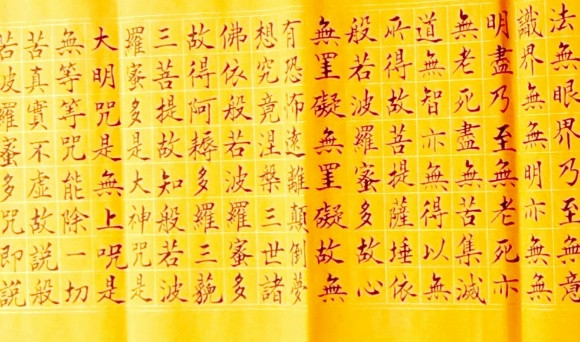 法無眼界乃至無意
識界無無明亦無無
明盡乃至無老死亦
無老死盡無苦集滅
道無智亦無得以無
所得故菩提薩埵依
般若波羅蜜多故心
無罣礙無罣礙故無
有恐怖遠離顛倒夢
想究竟涅槃三世諸
佛依般若波羅蜜多
故得阿耨多羅三藐
三菩提故知般若波
羅蜜多是大神咒是
大明咒是無上咒是
無等等咒能除一切
苦真實不虛故說般
若波羅蜜多咒即說